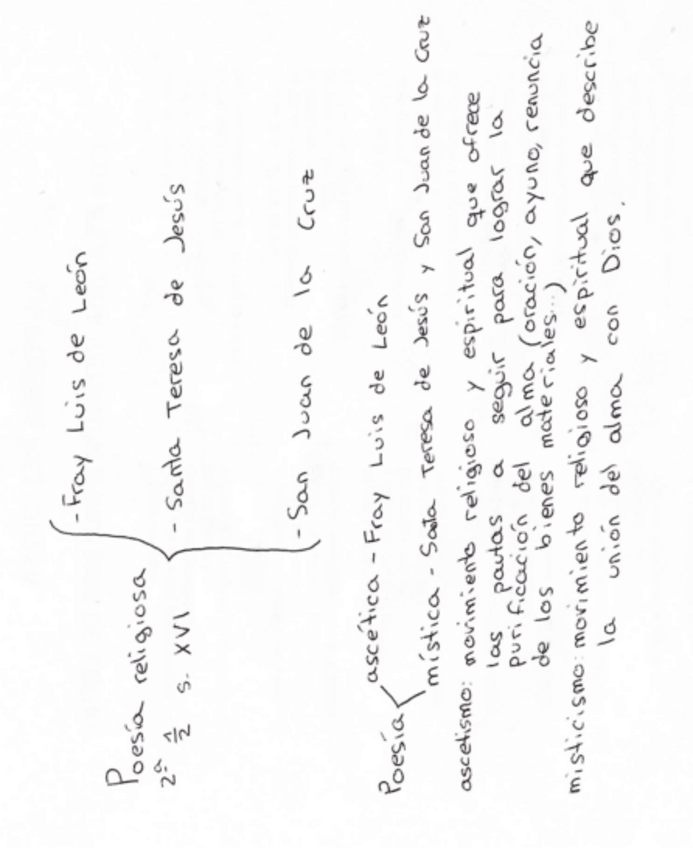 - Fray Luis de León
Poesía religiosa
2ª 1/2 s. XVI
- Santa Teresa de Jesús
- San Juan de la Cruz
Poesía
ascética - Fray Luis de León
mística - Santa Teresa de Jesús y San Juan de la Cruz
ascetismo: movimiento religioso y espiritual que ofrece
las pautas a seguir para lograr la
purificación del alma (oración, ayuno, renuncia
de los bienes materiales...)
misticismo: movimiento religioso y espiritual que describe
la unión del alma con Dios.